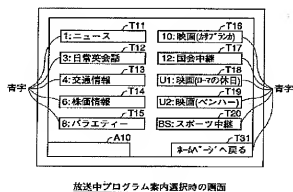 T11
1:ニュース
T12
3:日常英会話
T13
4:交通情報
T14
6:株価情報
T15
8:バラエティー
A10
T16
10:映画(カサブランカ)
T17
12:国会中継
T18
U1:映画(ローマの休日)
T19
U2:映画(ベンハー)
T20
BS:スポーツ中継
T31
ホームページへ戻る
青字
青字
放送中プログラム案内選択時の画面